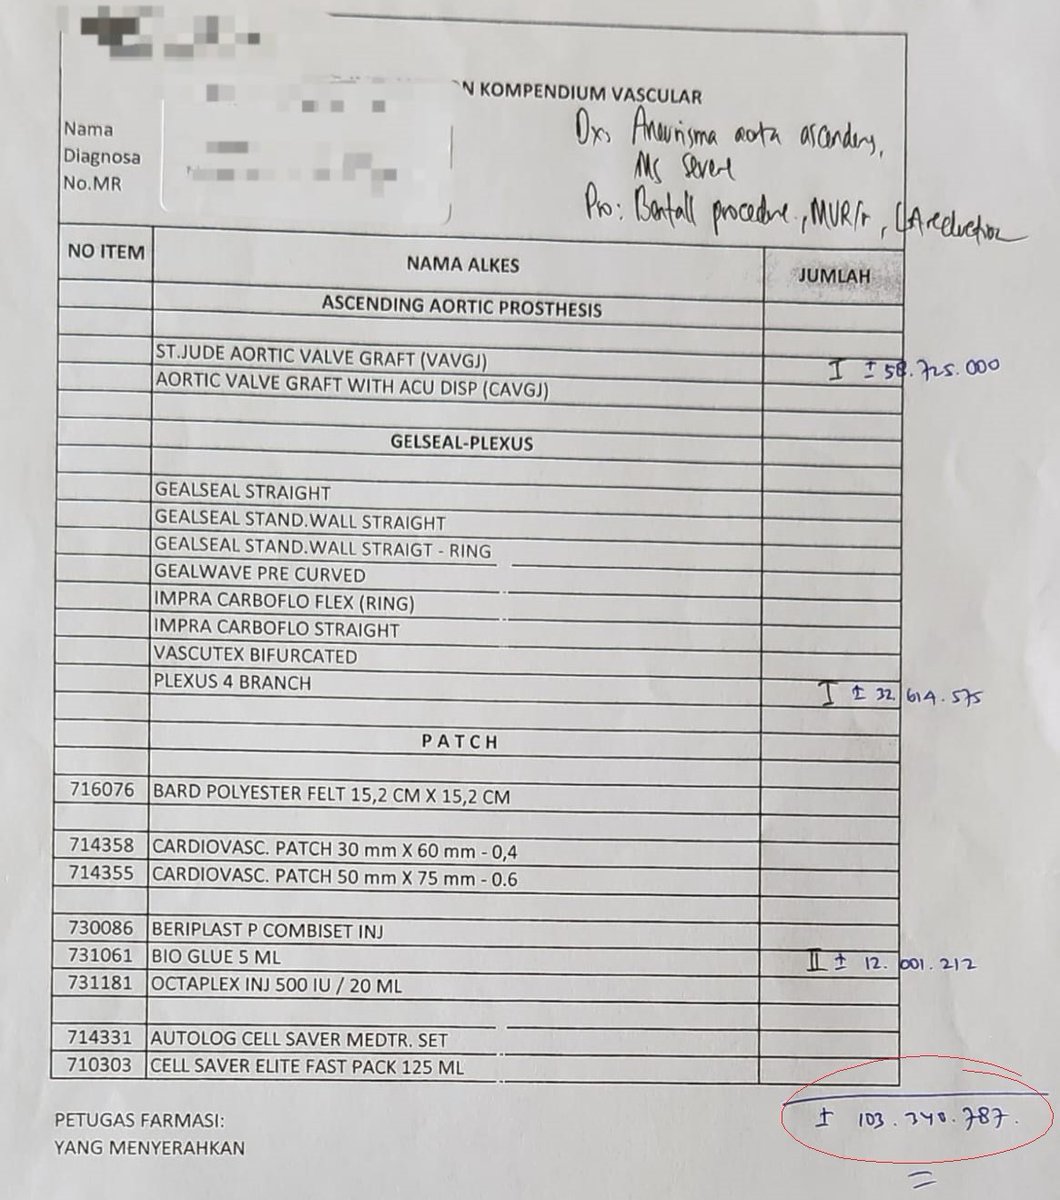 N KOMPENDIUM VASCULAR
Nama
Diagnosa
No.MR
Dx, Aneurisma aorta ascendens,
MS severe
Pro: Bentall procedure, MVR/r, LA reduction
NO ITEM NAMA ALKES JUMLAH
ASCENDING AORTIC PROSTHESIS
ST.JUDE AORTIC VALVE GRAFT (VAVGJ) I ± 58.725.000
AORTIC VALVE GRAFT WITH ACU DISP (CAVGJ)
GELSEAL-PLEXUS
GEALSEAL STRAIGHT
GEALSEAL STAND.WALL STRAIGHT
GEALSEAL STAND.WALL STRAIGT - RING
GEALWAVE PRE CURVED
IMPRA CARBOFLO FLEX (RING)
IMPRA CARBOFLO STRAIGHT
VASCUTEX BIFURCATED
PLEXUS 4 BRANCH I ± 32.614.575
P A T C H
716076 BARD POLYESTER FELT 15,2 CM X 15,2 CM
714358 CARDIOVASC. PATCH 30 mm X 60 mm - 0,4
714355 CARDIOVASC. PATCH 50 mm X 75 mm - 0.6
730086 BERIPLAST P COMBISET INJ
731061 BIO GLUE 5 ML II ± 12.001.212
731181 OCTAPLEX INJ 500 IU / 20 ML
714331 AUTOLOG CELL SAVER MEDTR. SET
710303 CELL SAVER ELITE FAST PACK 125 ML
± 103.340.787.
PETUGAS FARMASI:
YANG MENYERAHKAN